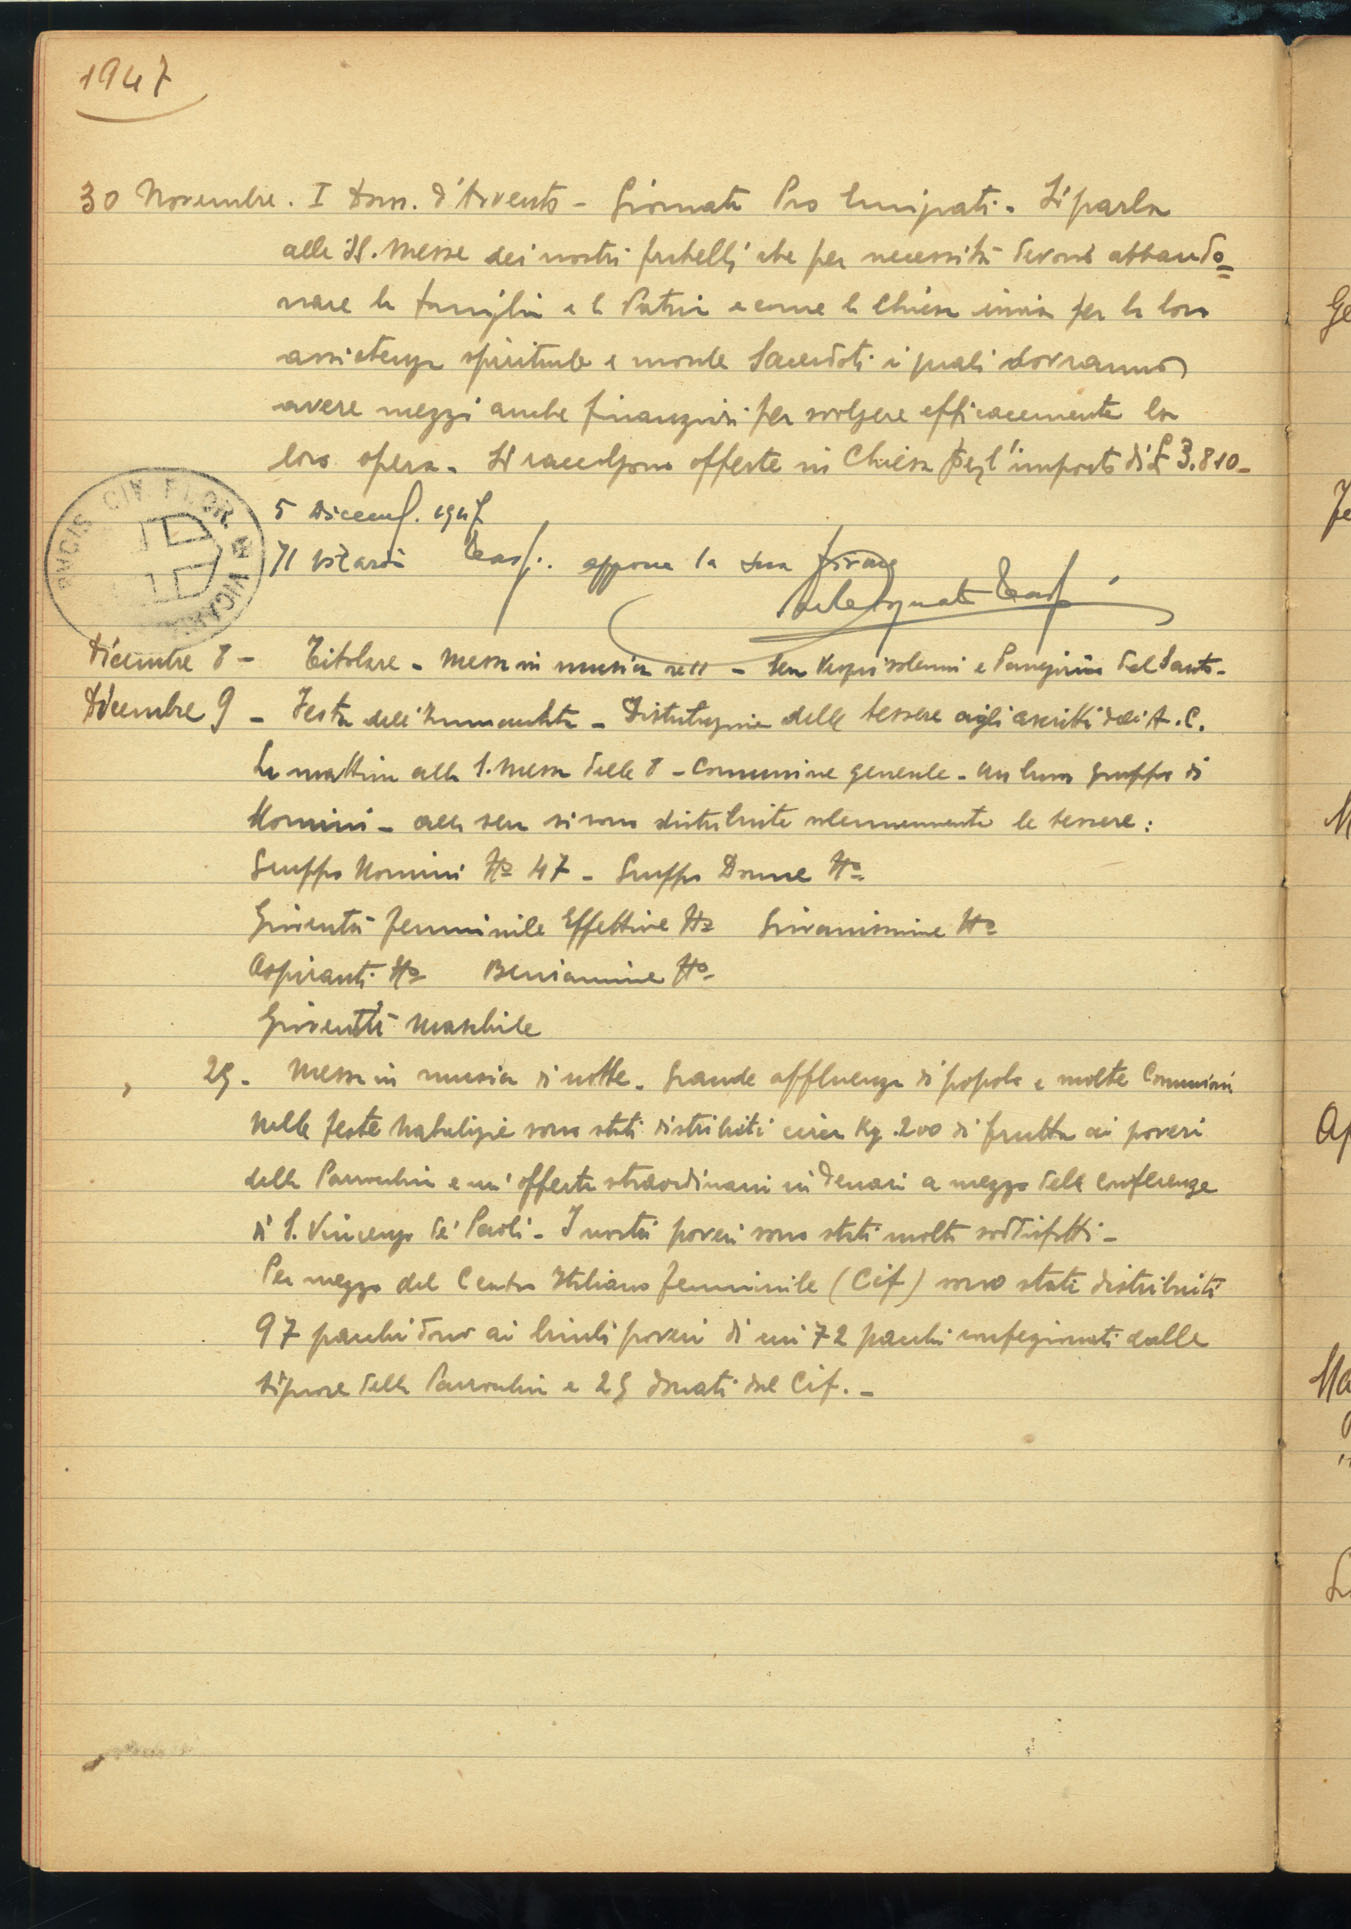 1947
30 Novembre. I Dom. d'Avvento - Giornata Pro Emigrati. Si parla
alle SS. Messe dei nostri fratelli che per necessità devono abbando=
nare la famiglia e la Patria e come la Chiesa invia per la loro
assistenza spirituale e morale Sacerdoti i quali dovranno
avere mezzi anche finanziari per svolgere efficacemente la
loro opera. Si raccolgono offerte in Chiesa per l'importo di £ 3.810-
5 Dicemb. 1947
Il appone la sua firma
PACIS CIV. FLOR.
Dicembre 8 - Titolare - Messa in musica ore 11 - Sera Vespri solenni e Panegirico del Santo.
Dicembre 9 - Festa dell'Immacolata - Distribuzione delle tessere agli ascritti dell'A.C.
La mattina alla S. Messa delle 8 - Comunione generale - un buon gruppo di
Uomini - alla sera si sono distribuite solennemente le tessere:
Gruppo Uomini No 47 - Gruppo Donne No
Gioventù femminile Effettive No Giovanissime No
Aspiranti No Beniamine No
Gioventù Maschile
" 25. Messa in musica di notte. Grande affluenza di popolo e molte Comunioni
Nelle feste natalizie sono stati distribuiti circa Kg. 200 di frutta ai poveri
della Parrocchia e un'offerta straordinaria in denari a mezzo delle conferenze
di S. Vincenzo de' Paoli - I nostri poveri sono stati molto soddisfatti -
Per mezzo del Centro Italiano femminile (Cif) sono stati distribuiti
97 pacchi dono ai bimbi poveri di cui 72 pacchi confezionati dalle
signore della Parrocchia e 25 donati dal Cif. -